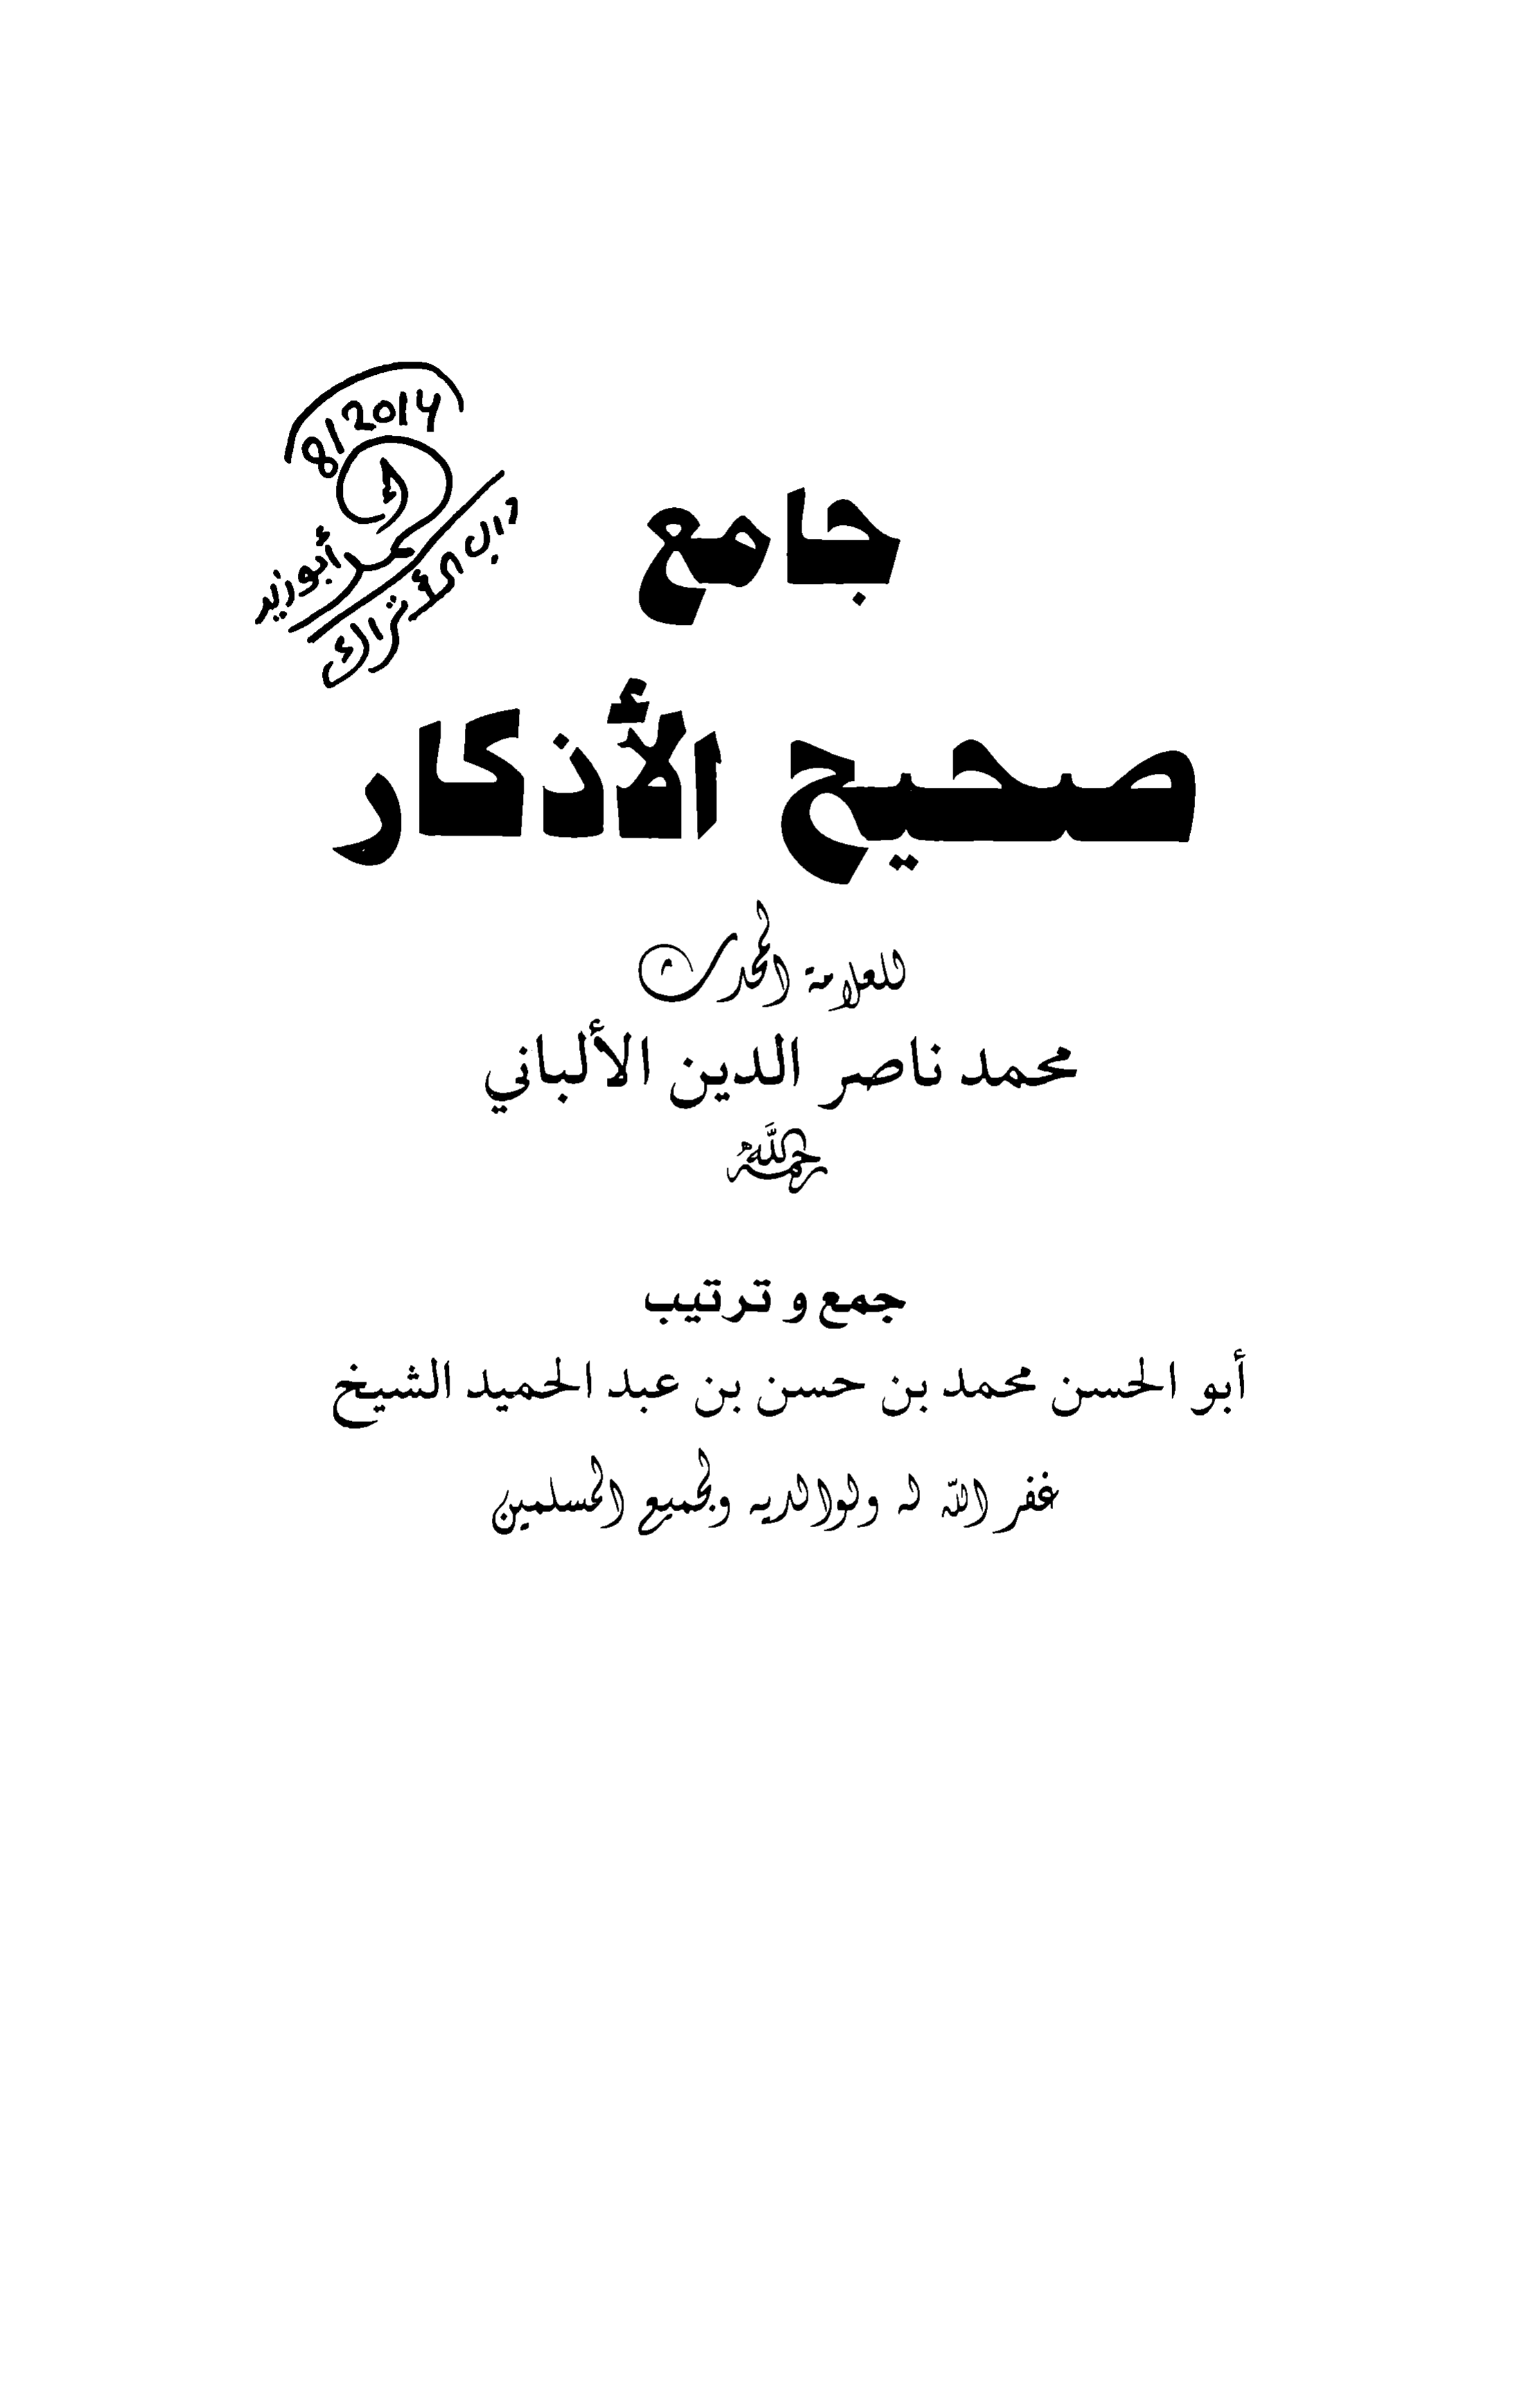 8/2014
أبو زيد
جامع
صحيح الأذكار
للعلامة المحدث
محمد ناصر الدين الألباني
رحمه الله
جمع و ترتيب
أبو الحسن محمد بن حسن بن عبد الحميد الشيخ
غفر الله له ولوالديه ولجميع المسلمين